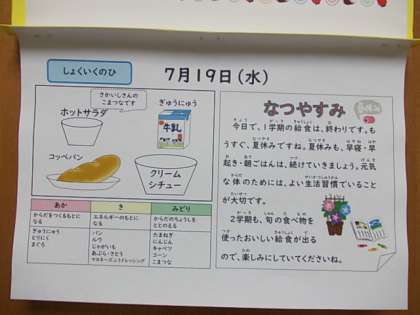 しょくいくのひ
7月19日(水)
さかいしさんの
こまつなです
ホットサラダ
ぎゅうにゅう
牛乳
コッペパン
クリーム
シチュー
あか
き
みどり
からだをつくるもとに
なる
エネルギーのもとに
なる
からだのちょうしを
ととのえる
ぎゅうにゅう
とりにく
まぐろ
パン
ルウ
じゃがいも
あぶら・さとう
マヨネーズふうドレッシング
たまねぎ
にんじん
キャベツ
コーン
こまつな
なつやすみ
今日で、1学期の給食は、終わりです。も
うすぐ、夏休みですね。夏休みも、早寝・早
起き・朝ごはんは、続けていきましょう。元気
な体のためには、よい生活習慣でいること
が大切です。
2学期も、旬の食べ物を
使ったおいしい給食が出る
ので、楽しみにしていてくださいね。